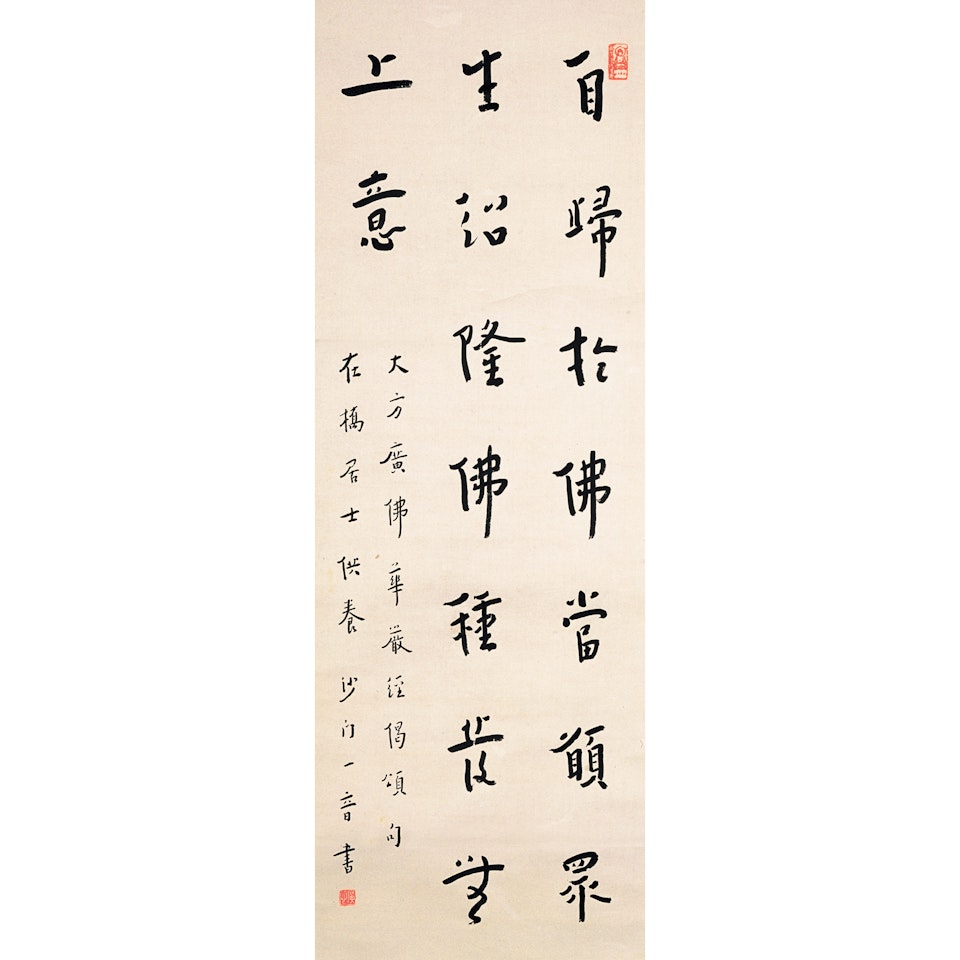 自歸於佛當願眾
生紹隆佛種發無
上意
大方廣佛華嚴經偈頌句
在橋居士供養 沙門一音書